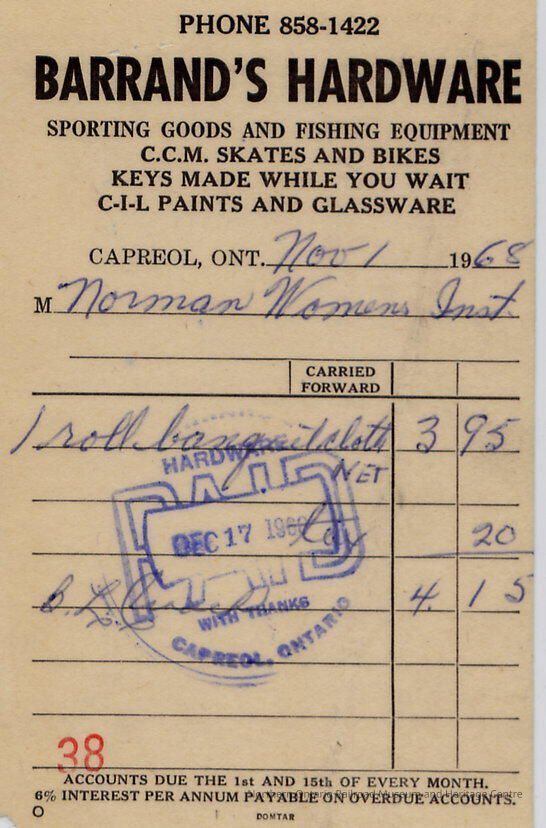 PHONE 858-1422
BARRAND'S HARDWARE
SPORTING GOODS AND FISHING EQUIPMENT
C.C.M. SKATES AND BIKES
KEYS MADE WHILE YOU WAIT
C-I-L PAINTS AND GLASSWARE
CAPREOL, ONT. Nov 1 1968
M Norman Womens Inst.
CARRIED
FORWARD
1 roll banquet cloth 3 95
HARDWARE
NET
PAID
DEC 17 1968
20
4. 15
WITH THANKS
CAPREOL, ONTARIO
38
ACCOUNTS DUE THE 1st AND 15th OF EVERY MONTH.
6% INTEREST PER ANNUM PAYABLE ON OVERDUE ACCOUNTS.
Northern Ontario Railroad Museum and Heritage Centre
DOMTAR